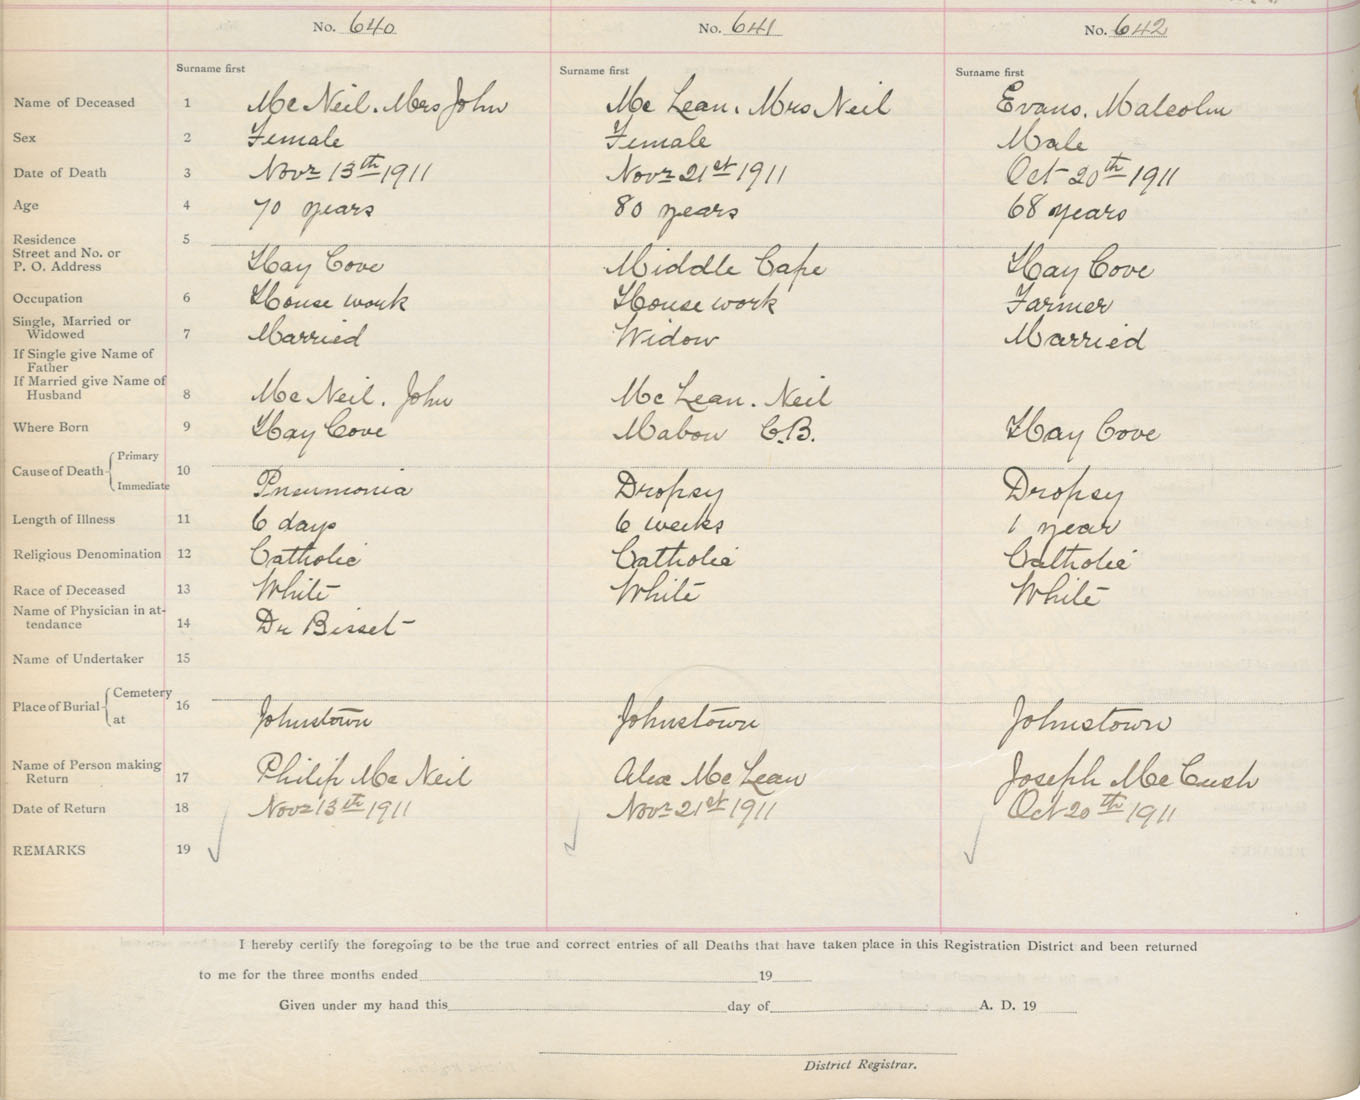 No. 640 No. 641 No. 642
Surname first Surname first Surname first
Name of Deceased 1 Mc Neil. Mrs John Mc Lean. Mrs Neil Evans. Malcolm
Sex 2 Female Female Male
Date of Death 3 Novr 13th 1911 Novr 21st 1911 Oct 20th 1911
Age 4 70 years 80 years 68 years
Residence 5
Street and No. or
P. O. Address Hay Cove Middle Cape Hay Cove
Occupation 6 House work House work Farmer
Single, Married or
Widowed 7 Married Widow Married
If Single give Name of
Father
If Married give Name of
Husband 8 Mc Neil. John Mc Lean. Neil
Where Born 9 Hay Cove Mabou C.B. Hay Cove
Primary
Cause of Death 10
Immediate Pneumonia Dropsy Dropsy
Length of Illness 11 6 days 6 weeks 1 year
Religious Denomination 12 Catholic Catholic Catholic
Race of Deceased 13 White White White
Name of Physician in at-
tendance 14 Dr Bisset
Name of Undertaker 15
Cemetery
Place of Burial 16
at Johnstown Johnstown Johnstown
Name of Person making
Return 17 Philip Mc Neil Alex Mc Lean Joseph Mc Cush
Date of Return 18 Novr 13th 1911 Novr 21st 1911 Oct 20th 1911
REMARKS 19
I hereby certify the foregoing to be the true and correct entries of all Deaths that have taken place in this Registration District and been returned
to me for the three months ended 19
Given under my hand this day of A. D. 19
District Registrar.